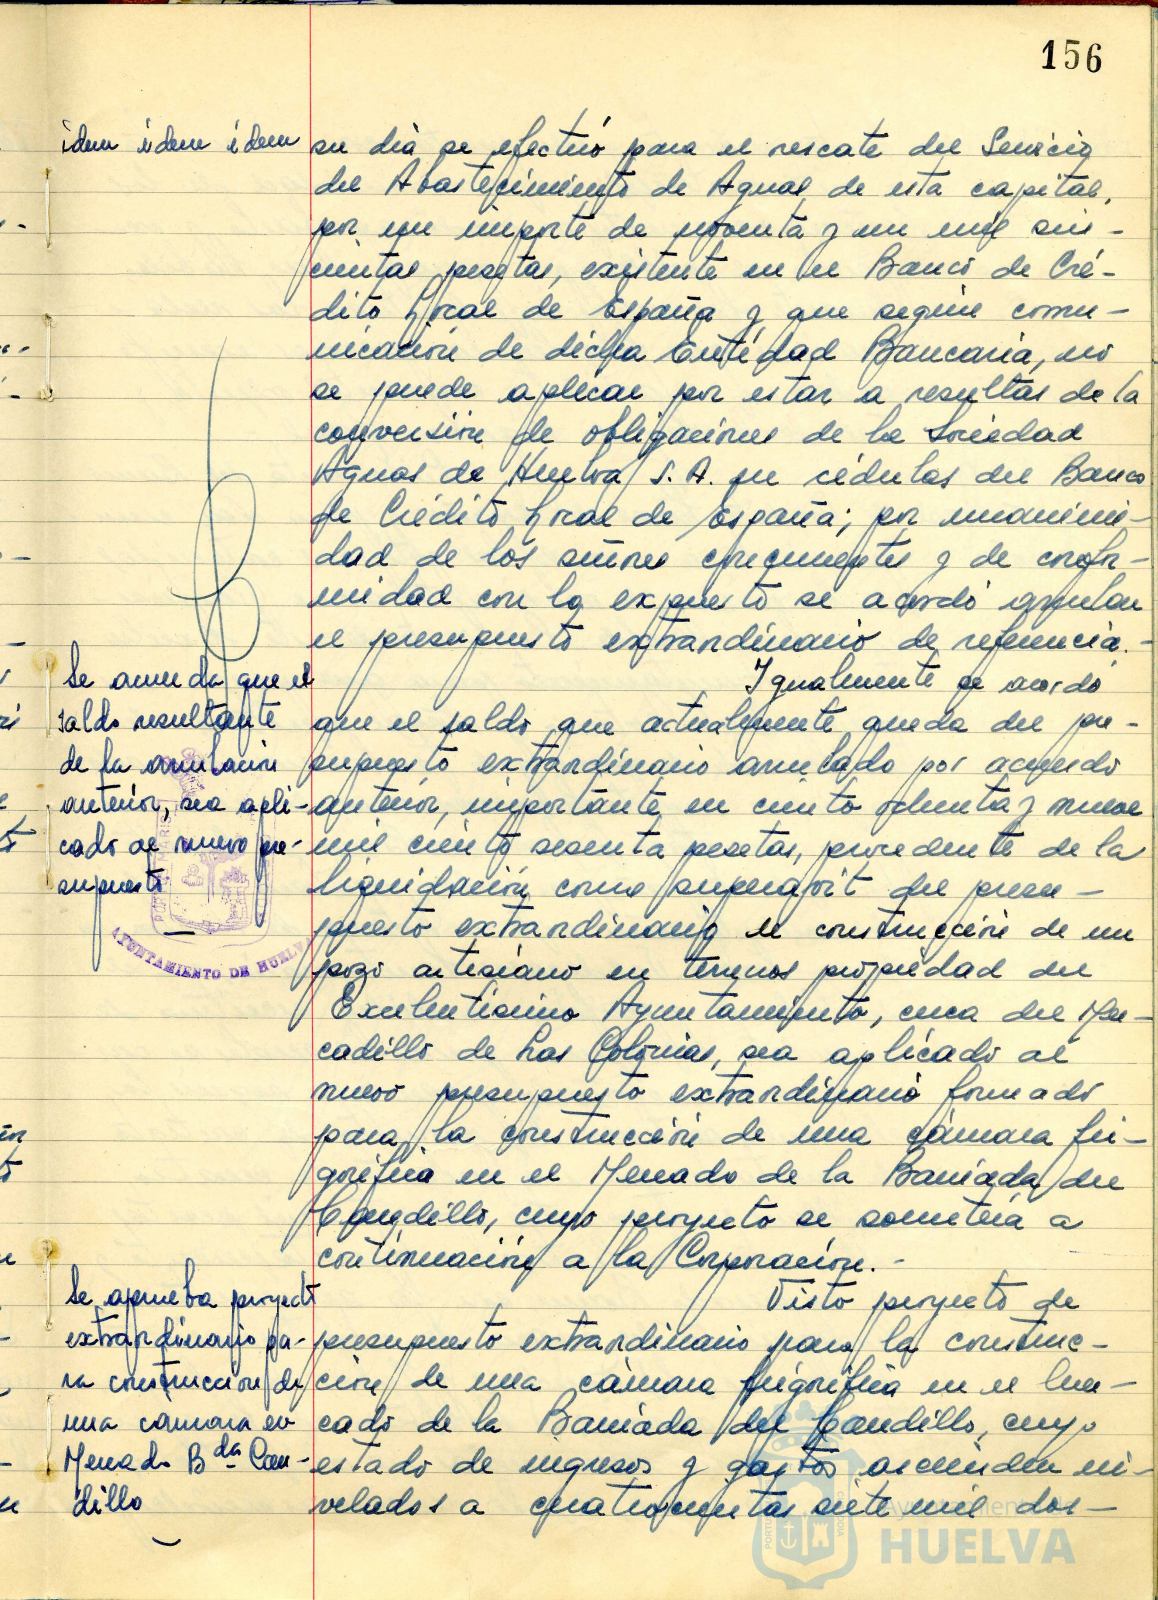 156
idem idem idem
su día se efectuó para el rescate del Servicio
del Abastecimiento de Aguas de esta capital,
por un importe de noventa y un mil seis-
cientas pesetas, existente en el Banco de Cré-
dito Local de España y que según comu-
nicación de dicha Entidad Bancaria, no
se puede aplicar por estar a resultas de la
conversión de obligaciones de la Sociedad
Aguas de Huelva S. A. en cédulas del Banco
de Crédito Local de España; por unanimi-
dad de los señores concurrentes y de confor-
midad con lo expuesto se acordó anular
el presupuesto extraordinario de referencia.-
Se acuerda que el
saldo resultante
de la anulación
anterior, sea apli-
cado al nuevo pre-
supuesto
Igualmente se acordó
que el saldo que actualmente queda del pre-
supuesto extraordinario anulado por acuerdo
anterior, importante en ciento ochenta y nueve
mil ciento sesenta pesetas, procedente de la
liquidación como superavit del presu-
puesto extraordinario de construcción de un
pozo artesiano en terrenos propiedad del
Excelentísimo Ayuntamiento, cerca del Mer-
cadillo de Las Colonias, sea aplicado al
nuevo presupuesto extraordinario formado
para la construcción de una cámara fri-
gorífica en el Mercado de la Barriada del
Caudillo, cuyo proyecto se someterá a
continuación a la Corporación.-
Se aprueba proyecto
extraordinario pa-
ra construccion de
una cámara en
Mercado Bda Cau-
dillo
Visto proyecto de
presupuesto extraordinario para la construc-
ción de una cámara frigorífica en el Mer-
cado de la Barriada del Caudillo, cuyo
estado de ingresos y gastos ascienden ni-
velados a cuatrocientas siete mil dos-
AYUNTAMIENTO DE HUELVA
Ayuntamiento de
HUELVA